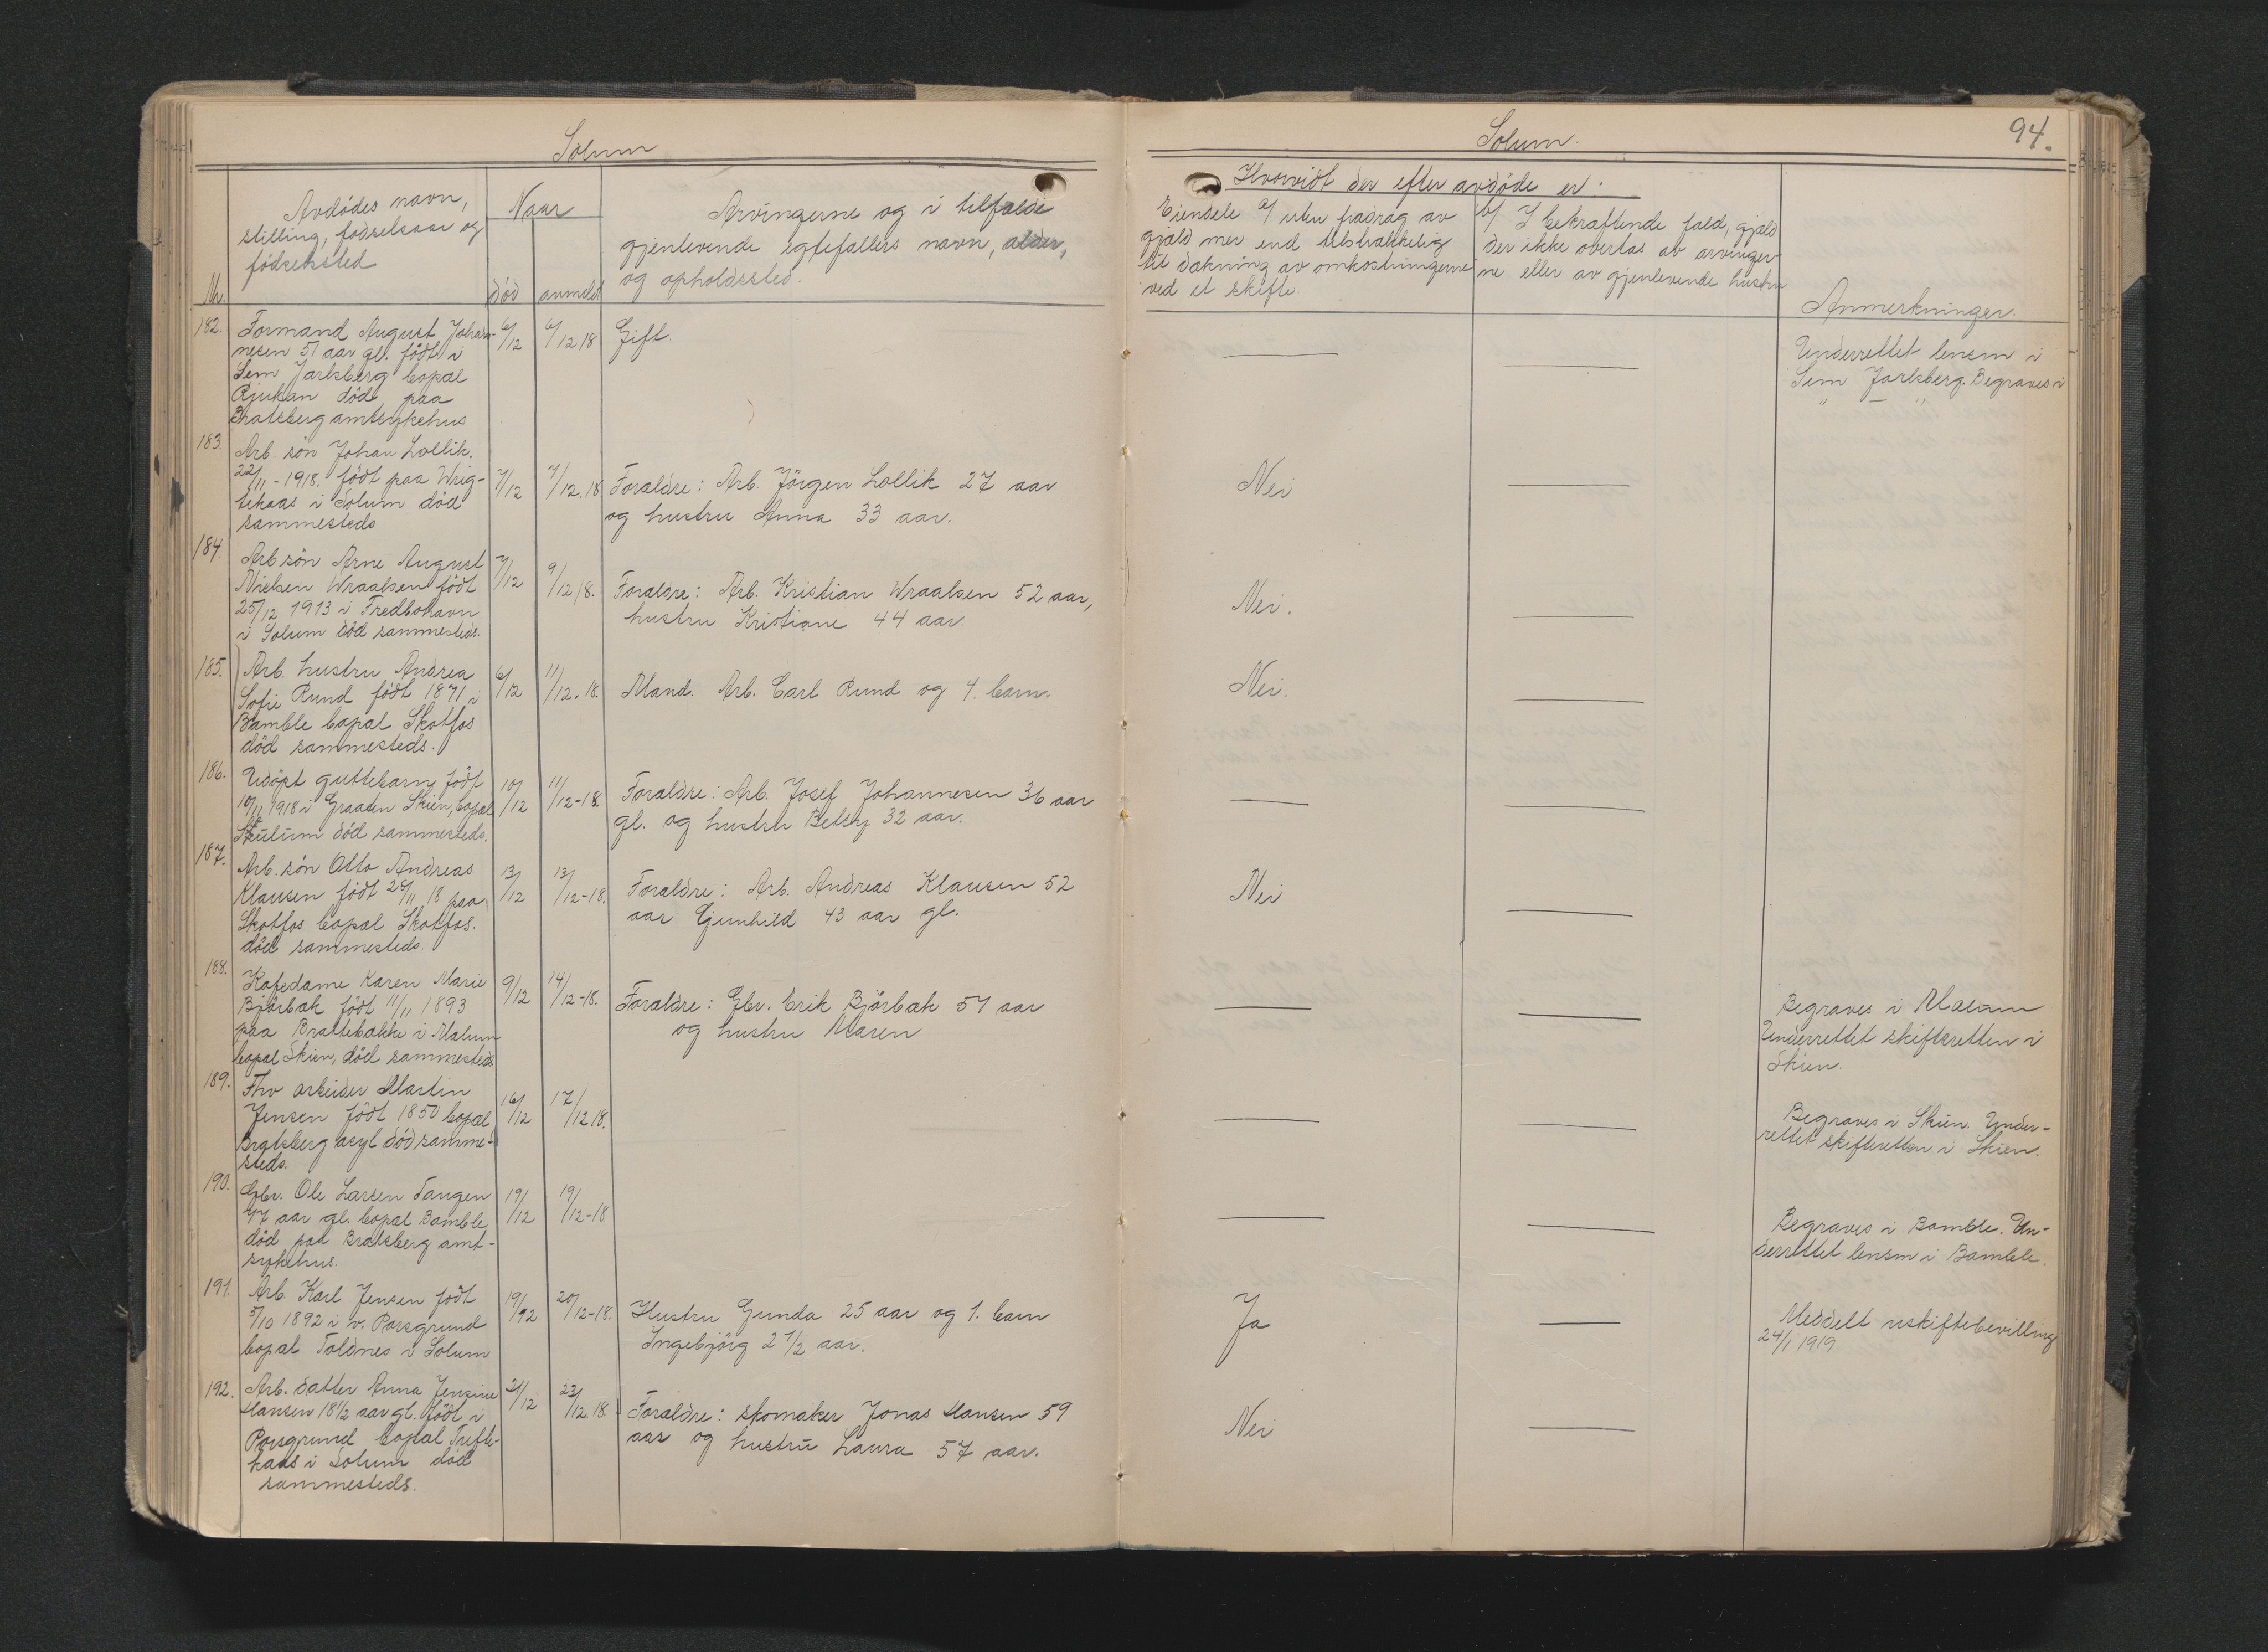 Solum
Avdödes navn,
stilling, födselsaar og
födselssted
Naar
Arvingerne og i tilfælde
gjenlevende egtefællers navn, alder,
og opholdssted.
Nr.
död
anmeldt
182.
Formand August Johan-
nesen 51 aar gl. födt i
Sem Jarlsberg bopæl
Rjukan död paa
Bratsberg amtsykehus
6/12
6/12 18
Gift.
183.
Arb. sön Johan Lollik.
22/11 - 1918. födt paa Wrig-
tekaas i Solum död
sammesteds
7/12
7/12.18
Forældre: Arb. Jörgen Lollik 27 aar
og hustru Anna 33 aar.
184.
Arb sön Arne August
Nielsen Wraalsen födt
25/12 1913 i Fredbohavn
i Solum död sammesteds.
7/12
9/12 18.
Forældre: Arb. Kristian Wraalsen 52 aar,
hustru Kristiane 44 aar.
185.
Arb. hustru Andrea
Sofie Rund födt 1871 i
Bamble bopæl Skotfos
död sammesteds.
6/12
11/12. 18.
Mand. Arb. Carl Rund og 4. barn.
186.
Udöpt guttebarn födt
10/11 1918 i Graaten Skien, bopæl
död sammesteds.
10/12
11/12-18.
Forældre: Arb. Josef Johannesen 36 aar
gl. og hustru Betsy 32 aar.
187.
Arb. sön Otto Andreas
Klausen födt 28/11 18 paa
Skotfos bopæl Skotfos.
död sammesteds.
13/12
13/12-18.
Forældre: Arb. Andreas Klausen 52
aar Gunhild 43 aar gl.
188.
Kafedame Karen Marie
Bjørbæk födt 11/11 1893
paa Brattebakke i Mælum
bopæl Skien, död sammesteds
9/12
14/12-18.
Forældre: Gbr. Erik Bjørbæk 51 aar
og hustru Maren
189.
Fhv arbeider Martin
Jensen födt 1850 bopæl
Bratsberg asyl död samme-
steds.
16/12
17/12 18.
190.
Gbr. Ole Larsen Tangen
47 aar gl. bopæl Bamble
död paa Bratsberg amt-
sykehus.
19/12
19/12-18
191.
Arb. Karl Jensen födt
5/10 1892 i v. Porsgrund
bopæl Toldnes i Solum
19/12
20/12-18.
Hustru Gunda 25 aar og 1. barn
Ingebjörg 2 1/2 aar.
192.
Arb. datter Anna Jensine
Hansen 18 1/2 aar gl. födt i
Porsgrund bopæl Tufte-
kaas i Solum död
sammesteds.
21/12
23/12.18.
Forældre: skomaker Jonas Hansen 59
aar og hustru Laura 57 aar.
Solum.
94.
Hvorvidt der efter avdöde er:
Eiendele a/ uten fradrag av
gjæld mer end tilstrækkelig
til dækning av omkostningerne
ved et skifte.
b/ I bekræftende fald, gjæld
der ikke overtas av arvinger-
ne eller av gjenlevende hustru.
Anmerkninger.
Underrettet lensm i
Sem Jarlsberg. Begraves i
" — "
Nei
Nei.
Nei.
Nei
Begraves i Mælum
Underrettet skifteretten i
Skien.
Begraves i Skien. Under-
rettet skifteretten i Skien.
Begraves i Bamble. Un-
derrettet lensm i Bamble.
Ja
Meddelt uskiftebevilling
24/1 1919
Nei